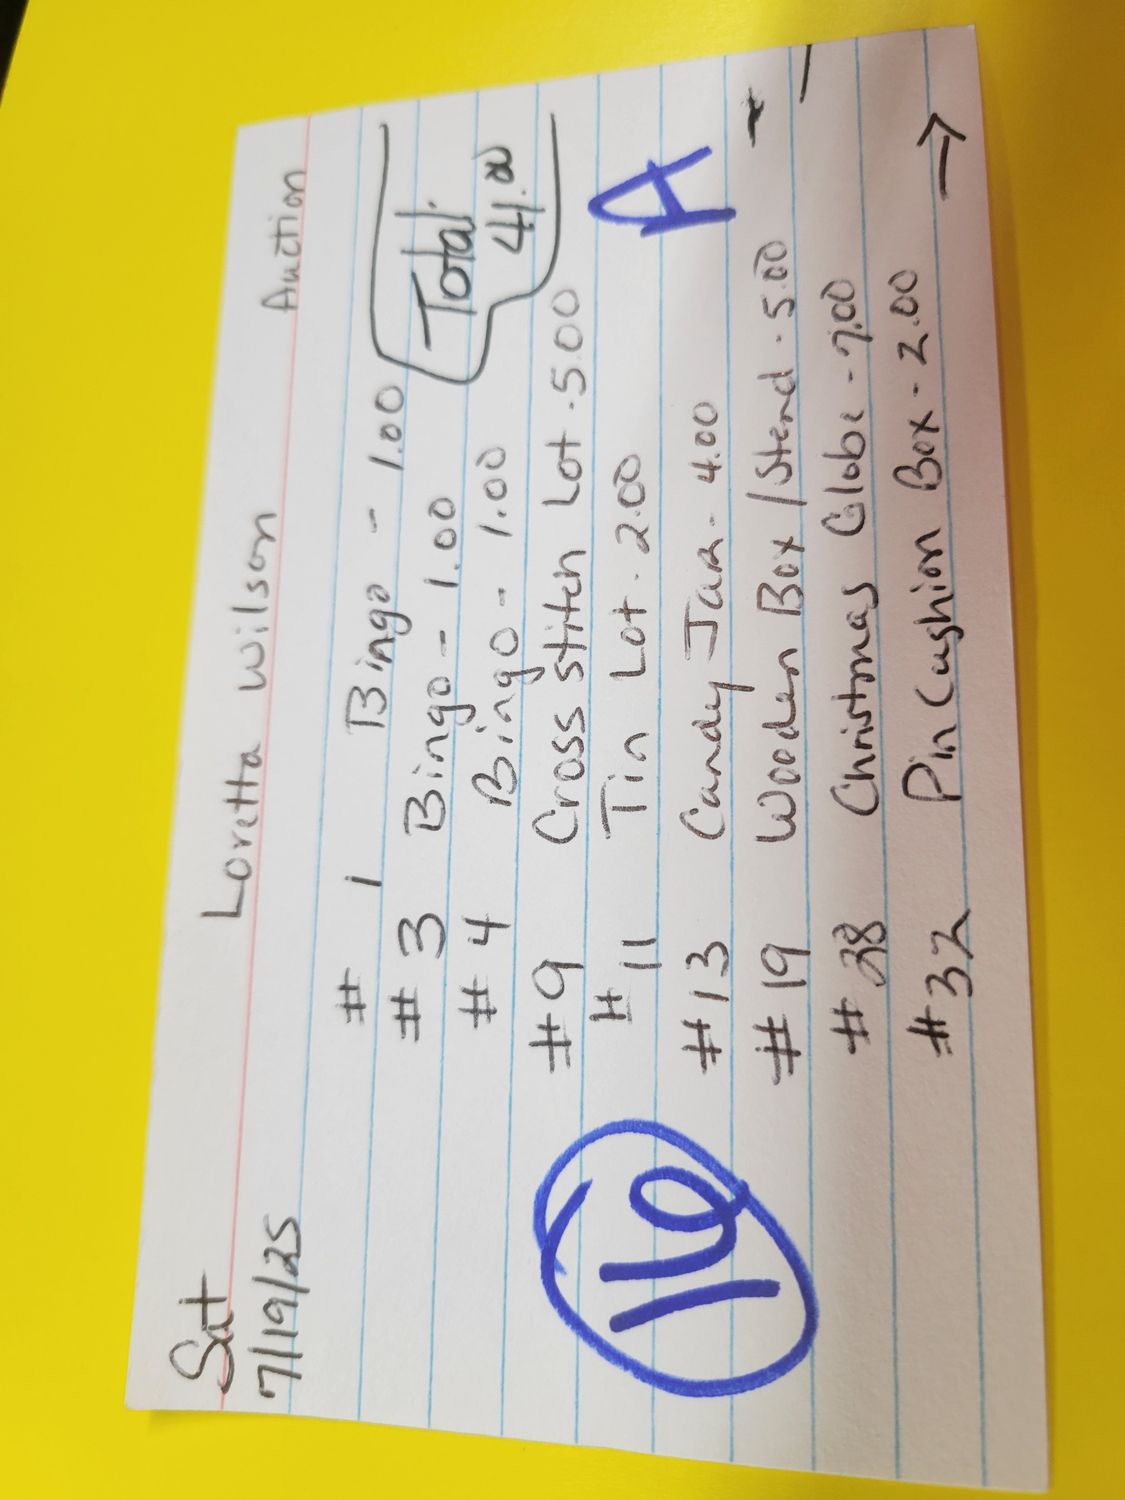 Sat
7/19/25
Loretta Wilson Auction
# 1 Bingo - 1.00
# 3 Bingo - 1.00
# 4 Bingo - 1.00
Total
41.00
#9 Cross stitch Lot . 5.00
# 11 Tin Lot . 2.00
#13 Candy Jar - 4.00
A
16
# 19 Wooden Box / Stand . 5.00
# 28 Christmas Globe - 7.00
#32 Pin Cushion Box - 2.00 →